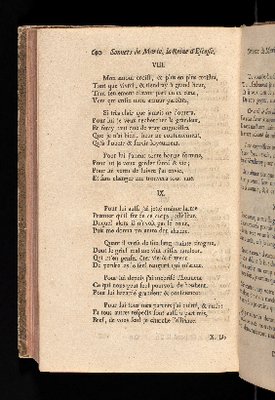 Sonnets de Marie, la Reine d'Escosse,
VIII.
Mon amour croist, & plus en plus croistra,
Tant que vivray, & tiendray à grand heur,
Tant seulement d'avoir part en ce cœur,
Vers qui enfin mon amour paroistra,
Si tres clair que jamais n'en doutera.
Pour luy je veux rechercher la grandeur,
Et feray tant que de vray cognoistra
Que je n'ay bien, heur ne contentement,
Qu'à l'obéir & servir loyaument.
Pour luy j'attens toute bonne fortune,
Pour luy je veux garder santé & vie;
Pour luy vertu de suivre j'ay envie,
Et sans changer me trouvera tout une.
IX.
Pour luy aussi j'ai jetté mainte larme
Premier qu'il fut de ce corps possesseur,
Duquel alors il n'avoit pas le cœur.
Puis me donna un autre dur alarme
Quand il versa de son sang mainte dragme,
Dont le grief mal me vint
Pour luy depuis j'ai mesprisé l'honneur,
Ce qui nous peut seul pourvoir de bonheur.
Pour luy j'ai hazardé grandeur & conscience.
Pour luy tous mes parens j'ai quitté, & amis,
Et tous autres respects sont
Bref, de vous seul je cherche l'alliance.
X. De